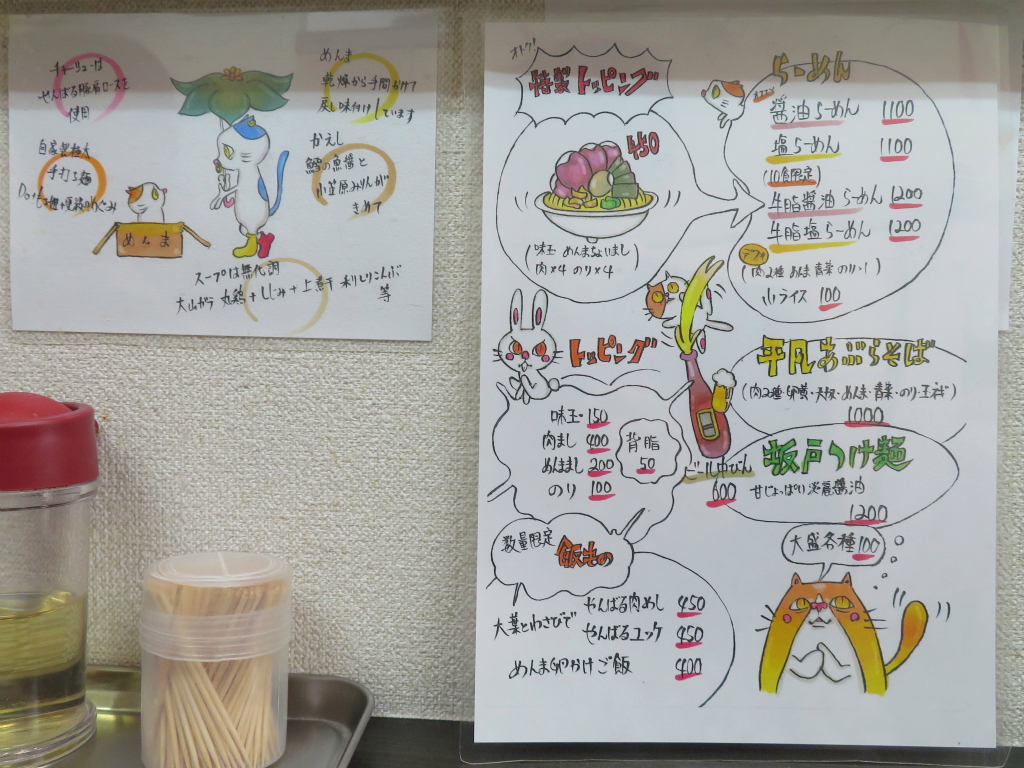 チャーシューは
やんばる豚肩ロースを
使用
めんま
乾燥から手間かけて
戻し味付けしています
自家製極太
手打ち麺
かえし
鱈の魚醤と
小笠原みりんが
きめて
めんま
スープは無化調
大山ガラ 丸鶏+しじみ+上煮干 利しりこんぶ
等
オトク!
特製トッピング
450
(味玉 めんまないまし)
肉×4 のり×4
らーめん
オススメ
醤油らーめん 1100
塩らーめん 1100
(10食限定)
牛脂醤油らーめん 1200
牛脂塩らーめん 1200
(肉2種 めんま 青菜 のり・1)
小ライス 100
トッピング
味玉・150
肉まし 400
めんままし 200
のり 100
背脂
50
ビール中びん
600
平凡あぶらそば
1000
坂戸つけ麺
甘じょっぱい淡麗醤油
1200
大盛各種100
数量限定
飯もの
大葉とわさびで
やんばる肉めし 450
やんばるユッケ 450
めんま卵かけご飯 400